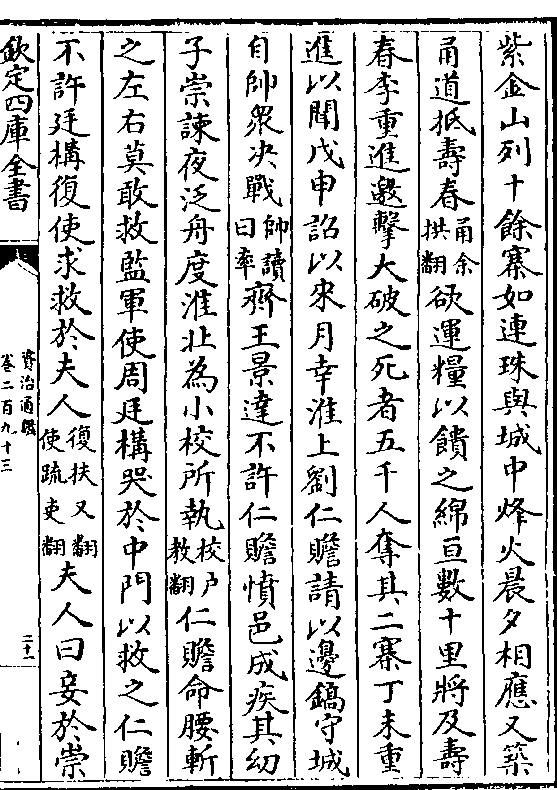 紫金山列十餘寨如連珠與城中烽火晨夕相應又築
甬道抵壽春甬余拱翻欲運糧以饋之綿亘數十里將及壽
春李重進邀擊大破之死者五千人奪其二寨丁未重
進以聞戊申詔以來月幸淮上劉仁贍請以邊鎬守城
自帥衆决戰帥讀曰率齊王景達不許仁贍憤邑成疾其幼
子崇諫夜泛舟度淮北為小校所執校户教翻仁贍命腰斬
之左右莫敢救監軍使周廷構哭於中門以救之仁贍
不許廷構復使求救於夫人復扶又翻使疏吏翻夫人曰妾於崇
欽定四庫全書
資治通鑑
卷二百九十三
二十一